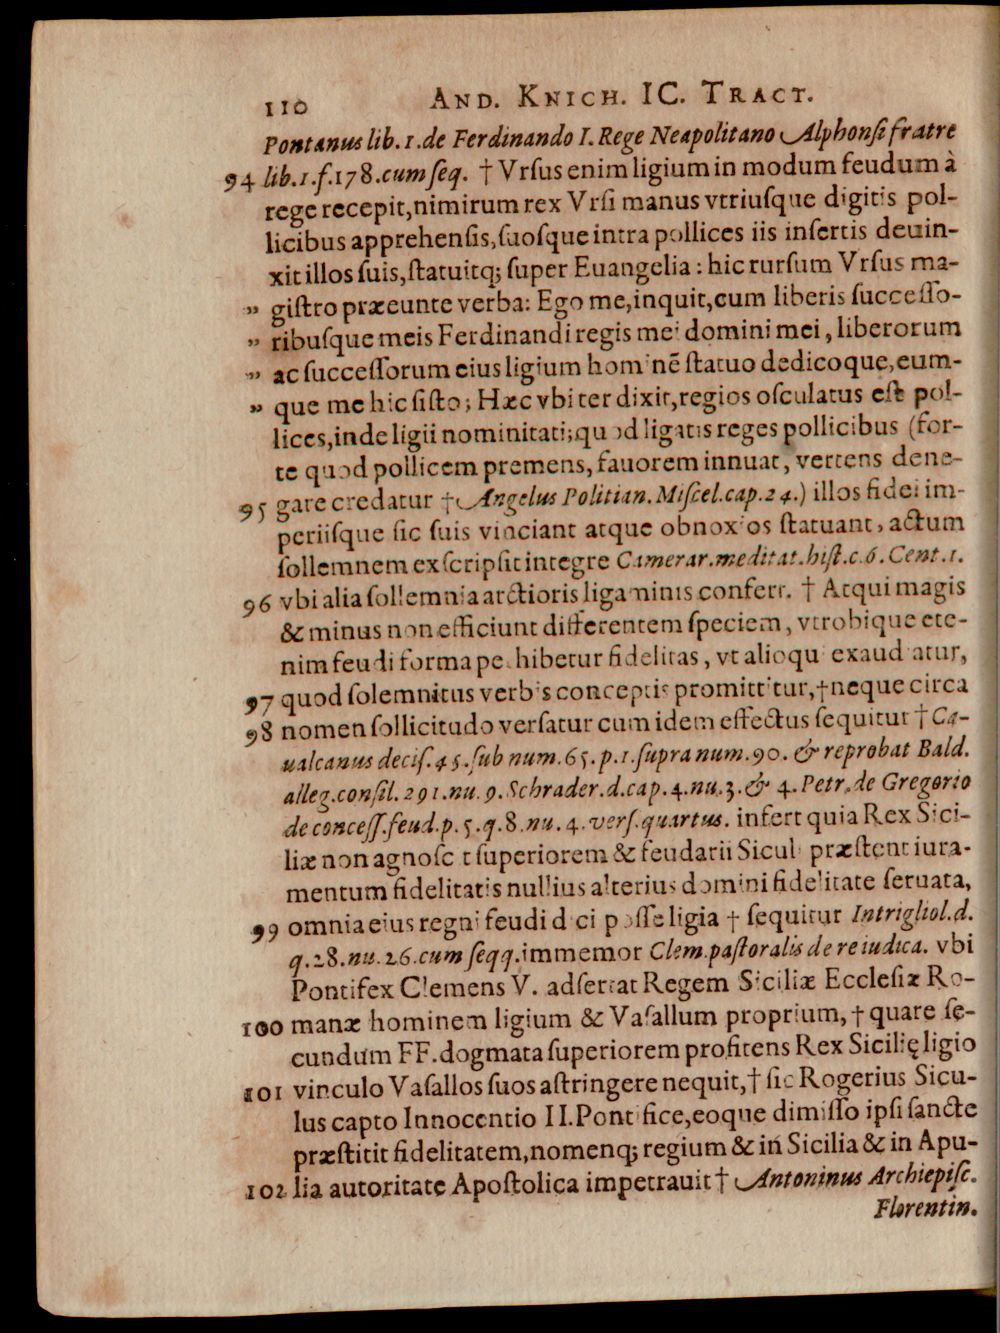 110 AND. KNICH. IC. TRACT.
Pontanus lib.1.de Ferdinando I. Rege Neapolitano Alphonsi fratre
94 lib.1.f.178.cum seq. † Vrſus enim ligium in modum feudum à
rege recepit, nimirum rex Vrſi manus vtriuſque digitis pol-
licibus apprehenſis, ſuoſque intra pollices iis inſertis deuin-
xit illos ſuis, ſtatuitq; ſuper Euangelia : hic rurſum Vrſus ma-
„ giſtro præeunte verba: Ego me, inquit, cum liberis ſucceſſo-
„ ribuſque meis Ferdinandi regis mei domini mei, liberorum
„ ac ſucceſſorum eius ligium hominẽ ſtatuo dedicoque, eum-
„ que me hic ſiſto; Hæc vbi ter dixit, regios oſculatus eſt pol-
lices, inde ligii nominitati; quod ligatis reges pollicibus (for-
te quod pollicem premens, fauorem innuat, vertens dene-
95 gare credatur † Angelus Politian. Miſcel.cap.24.) illos fidei im-
periiſque ſic ſuis vinciant atque obnoxios ſtatuant, actum
ſollemnem exſcripſit integre Camerar.meditat.hiſt.c.6.Cent.1.
96 vbi alia ſollemnia arctioris ligaminis confert. † Atqui magis
& minus non efficiunt differentem ſpeciem, vtrobique ete-
nim feudi forma perhibetur fidelitas, vt alioqui exaudiatur,
97 quod ſolemnitus verbis conceptis promittitur, † neque circa
98 nomen ſollicitudo verſatur cum idem effectus ſequitur † Ca-
ualcanus deciſ.45.ſub num.65.p.1.ſupra num.90. & reprobat Bald.
alleg.conſil.291.nu.9.Schrader.d.cap.4.nu.3.& 4.Petr.de Gregorio
de conceſſ.feud.p.5.q.8.nu.4.verſ.quartus. infert quia Rex Sici-
liæ non agnoſcit ſuperiorem & feudarii Siculi præſtent iura-
mentum fidelitatis nullius alterius domini fidelitate ſeruata,
99 omnia eius regni feudi dici poſſe ligia † ſequitur Intrigliol.d.
q.28.nu.26.cum ſeqq.immemor Clem.paſtoralis de re iudica. vbi
Pontifex Clemens V. adſerat Regem Siciliæ Eccleſiæ Ro-
100 manæ hominem ligium & Vaſallum proprium, † quare ſe-
cundum FF. dogmata ſuperiorem profitens Rex Sicilię ligio
101 vinculo Vaſallos ſuos aſtringere nequit, † ſic Rogerius Sicu-
lus capto Innocentio II. Pontifice, eoque dimiſſo ipſi ſancte
præſtitit fidelitatem, nomenq; regium & in Sicilia & in Apu-
102 lia autoritate Apoſtolica impetrauit † Antoninus Archiepiſc.
Florentin.